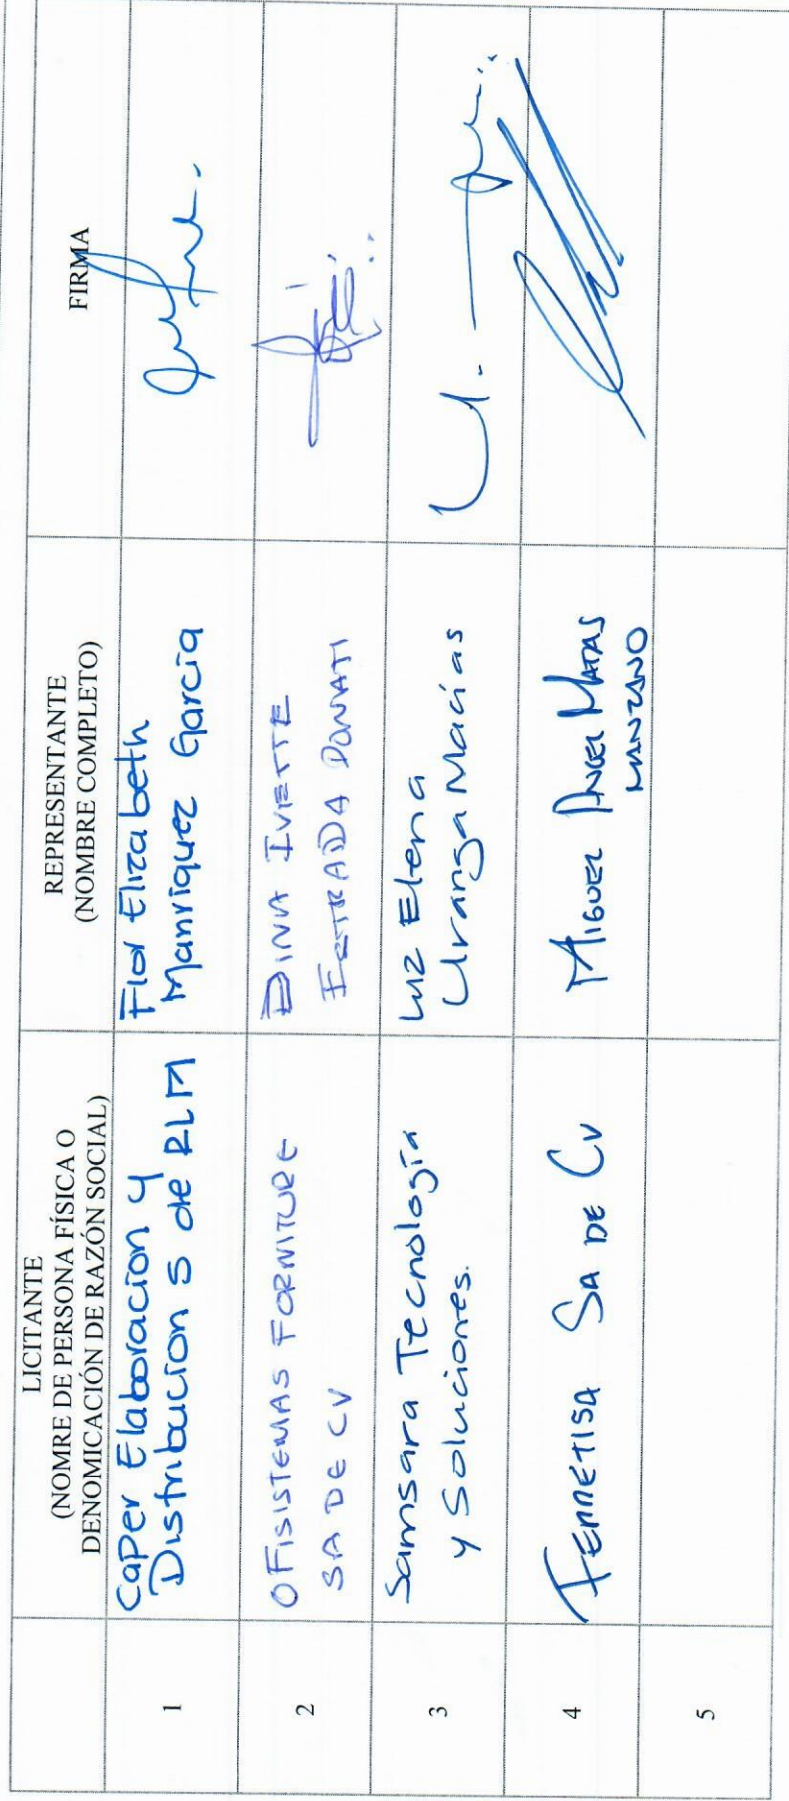 LICITANTE
(NOMRE DE PERSONA FÍSICA O
DENOMICACIÓN DE RAZÓN SOCIAL)
REPRESENTANTE
(NOMBRE COMPLETO)
FIRMA
1
Caper Elaboracion y
Distribucion S de RL M
Flor Elizabeth
Manriquez Garcia
2
OFISISTEMAS FORNITURE
SA DE CV
DINA IVETTE
ESTRADA DONATI
3
Samsara Tecnología
y Soluciones.
Luz Elena
Uranga Macías
4
FERRETISA SA DE CV
MIGUEL ANGEL MATAS
MANZANO
5